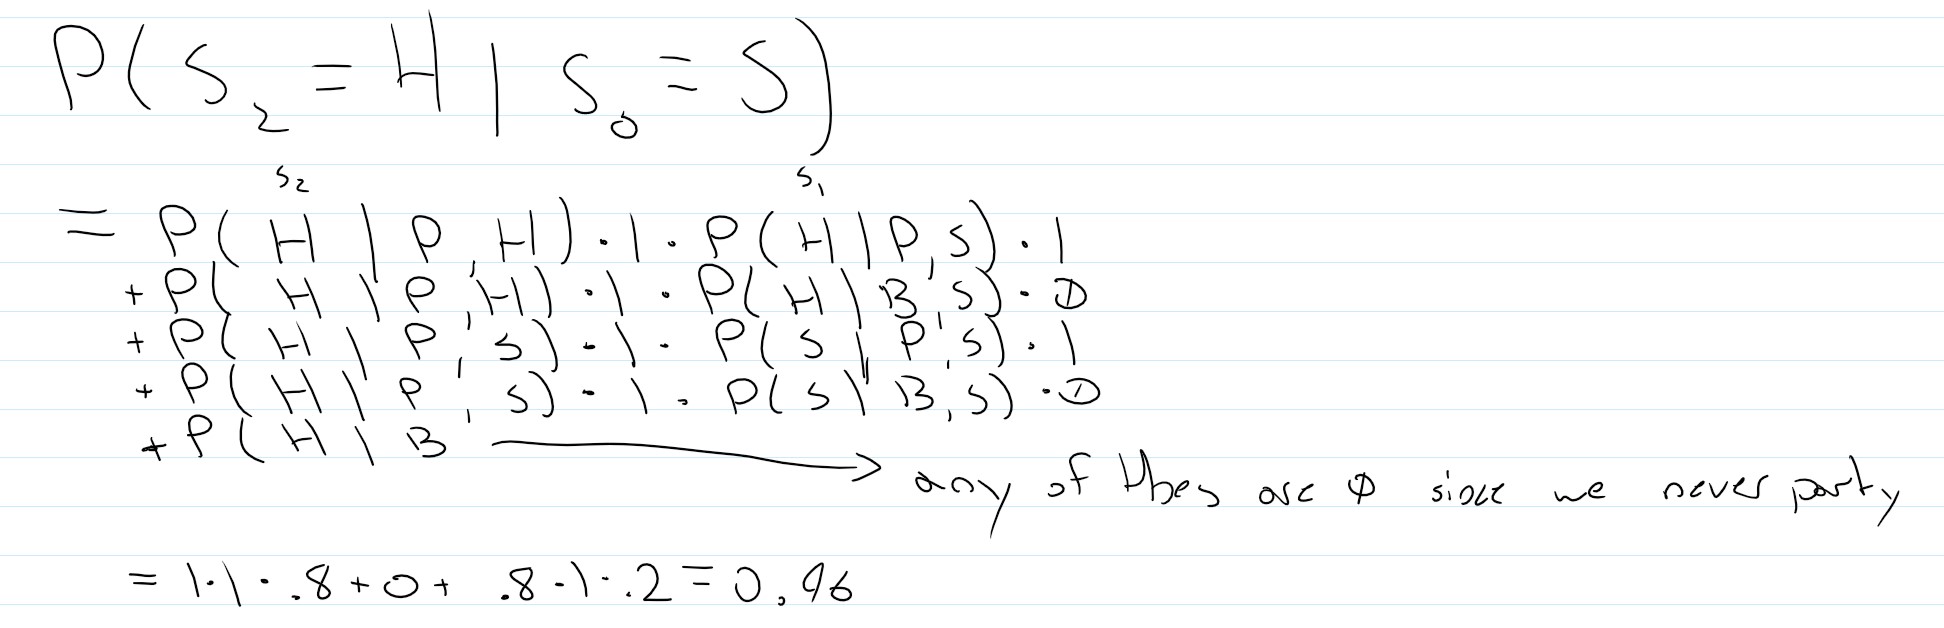 P(S₂ = H | S₀ = S)
s₂ s₁
= P(H | P, H) · 1 · P(H | P, S) · 1
+ P(H | P, H) · 1 · P(H | B, S) · 0
+ P(H | P, S) · 1 · P(S | P, S) · 1
+ P(H | P, S) · 1 · P(S | B, S) · 0
+ P(H | B → any of thes are 0 since we never party
= 1·1·.8 + 0 + .8·1·.2 = 0.96